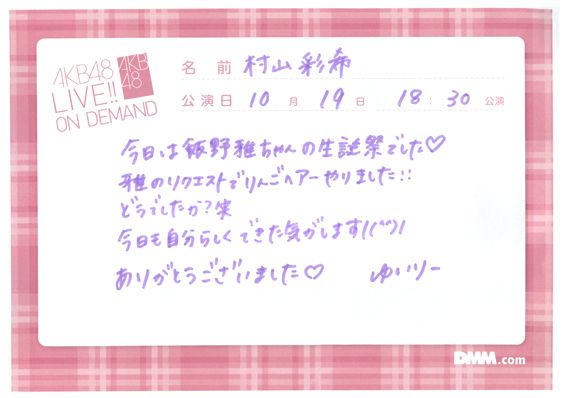 AKB48
LIVE!!
ON DEMAND
AKB
48
名 前 村山彩希
公演日 10 月 19 日 18 : 30 公演
今日は飯野雅ちゃんの生誕祭でした♡
雅のリクエストでりんごヘアーやりました!!
どうでしたか?笑
今日も自分らしくできた気がします!(^^)!
ありがとうございました♡ ゆいりー
DMM.com